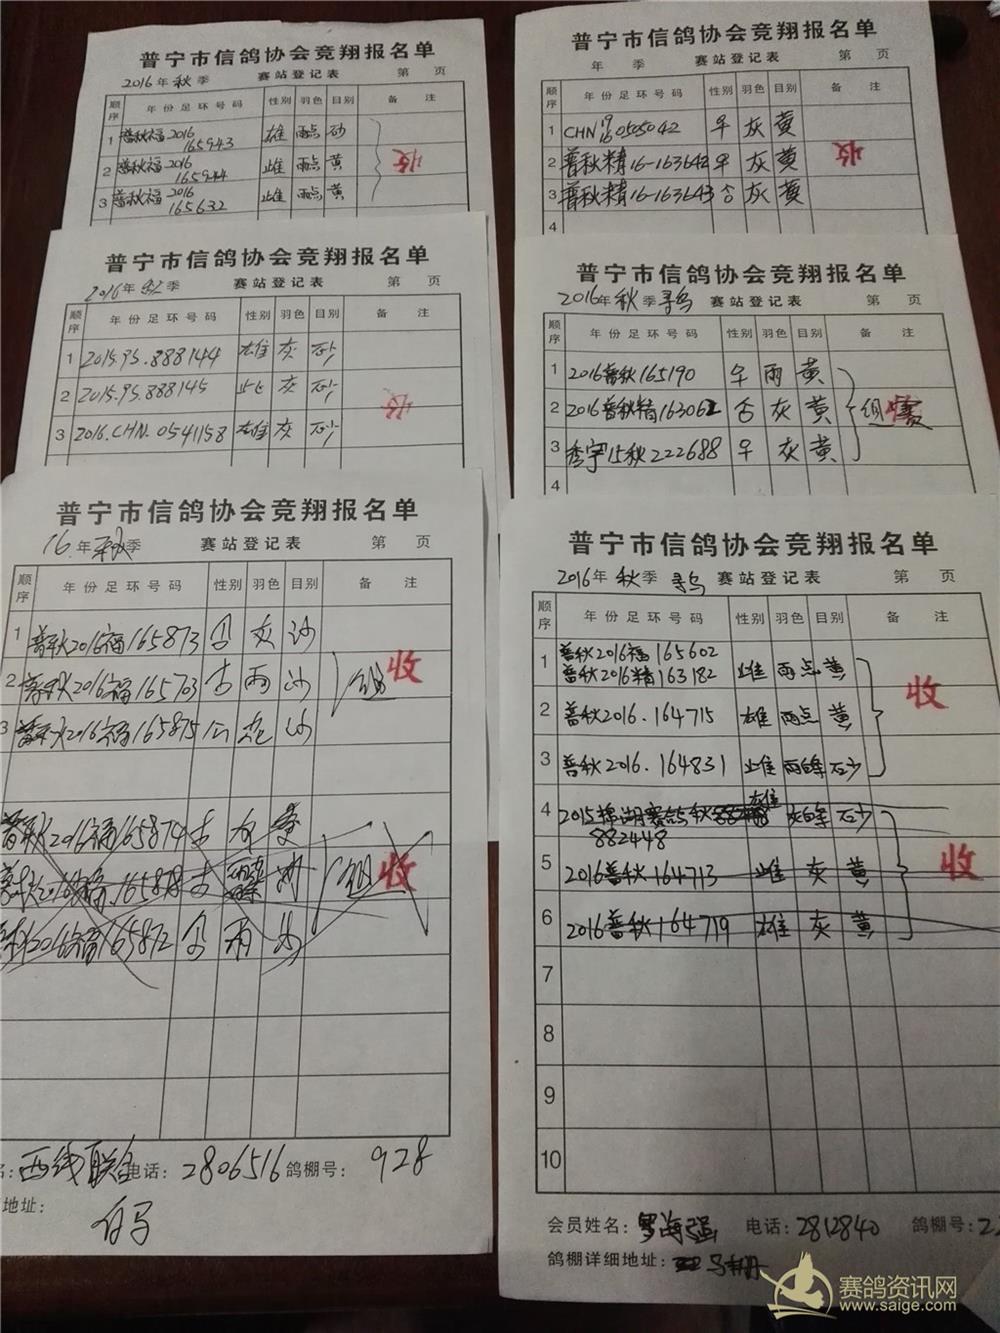 普宁市信鸽协会竞翔报名单
2016年 秋 季 赛站登记表 第 页
顺序 年份足环号码 性别 羽色 目别 备 注
1 普秋福2016 165943 雄 雨点 砂
2 普秋福2016 165944 雌 雨点 黄
3 普秋福2016 165632 雌 雨点 黄
收
普宁市信鸽协会竞翔报名单
年 季 赛站登记表 第 页
顺序 年份足环号码 性别 羽色 目别 备 注
1 CHN 16 0505042 灰 黄
2 普秋精16-163642 灰 黄
3 普秋精16-163643 灰 黄
4
收
普宁市信鸽协会竞翔报名单
2016年 季 赛站登记表 第 页
顺序 年份足环号码 性别 羽色 目别 备 注
1 2015.95.888144 雄 灰 砂
2 2015.95.888145 灰 砂
3 2016.CHN.0541158 雄 灰 砂
收
普宁市信鸽协会竞翔报名单
2016年 秋 季 寻乌 赛站登记表 第 页
顺序 年份足环号码 性别 羽色 目别 备 注
1 2016普秋165190 雨 黄
2 2016普秋精163062 灰 黄 组
3 15秋222688 灰 黄
4
普宁市信鸽协会竞翔报名单
16年 秋 季 赛站登记表 第 页
顺序 年份足环号码 性别 羽色 目别 备 注
1 普秋2016福165873 灰 沙
2 普秋2016福165703 雨 沙 组 收
3 普秋2016福165875 沙
普秋2016福165874
组 收
普秋2016福165872 雨 沙
西线联合 电话: 2806516 鸽棚号: 928
地址:
白马
普宁市信鸽协会竞翔报名单
2016年 秋 季 寻乌 赛站登记表 第 页
顺序 年份足环号码 性别 羽色 目别 备 注
1 普秋2016福165602
普秋2016精163182 雌 雨点 黄
收
2 普秋2016.164715 雄 雨点 黄
3 普秋2016.164831 雌 雨白条 砂
4 2015棉湖赛鸽秋 882448 雄 灰白条 砂
5 2016普秋164713 雌 灰 黄 收
6 2016普秋164719 雄 灰 黄
7
8
9
10
会员姓名: 罗海强 电话: 2812840 鸽棚号:
鸽棚详细地址:
赛鸽资讯网
www.saige.com